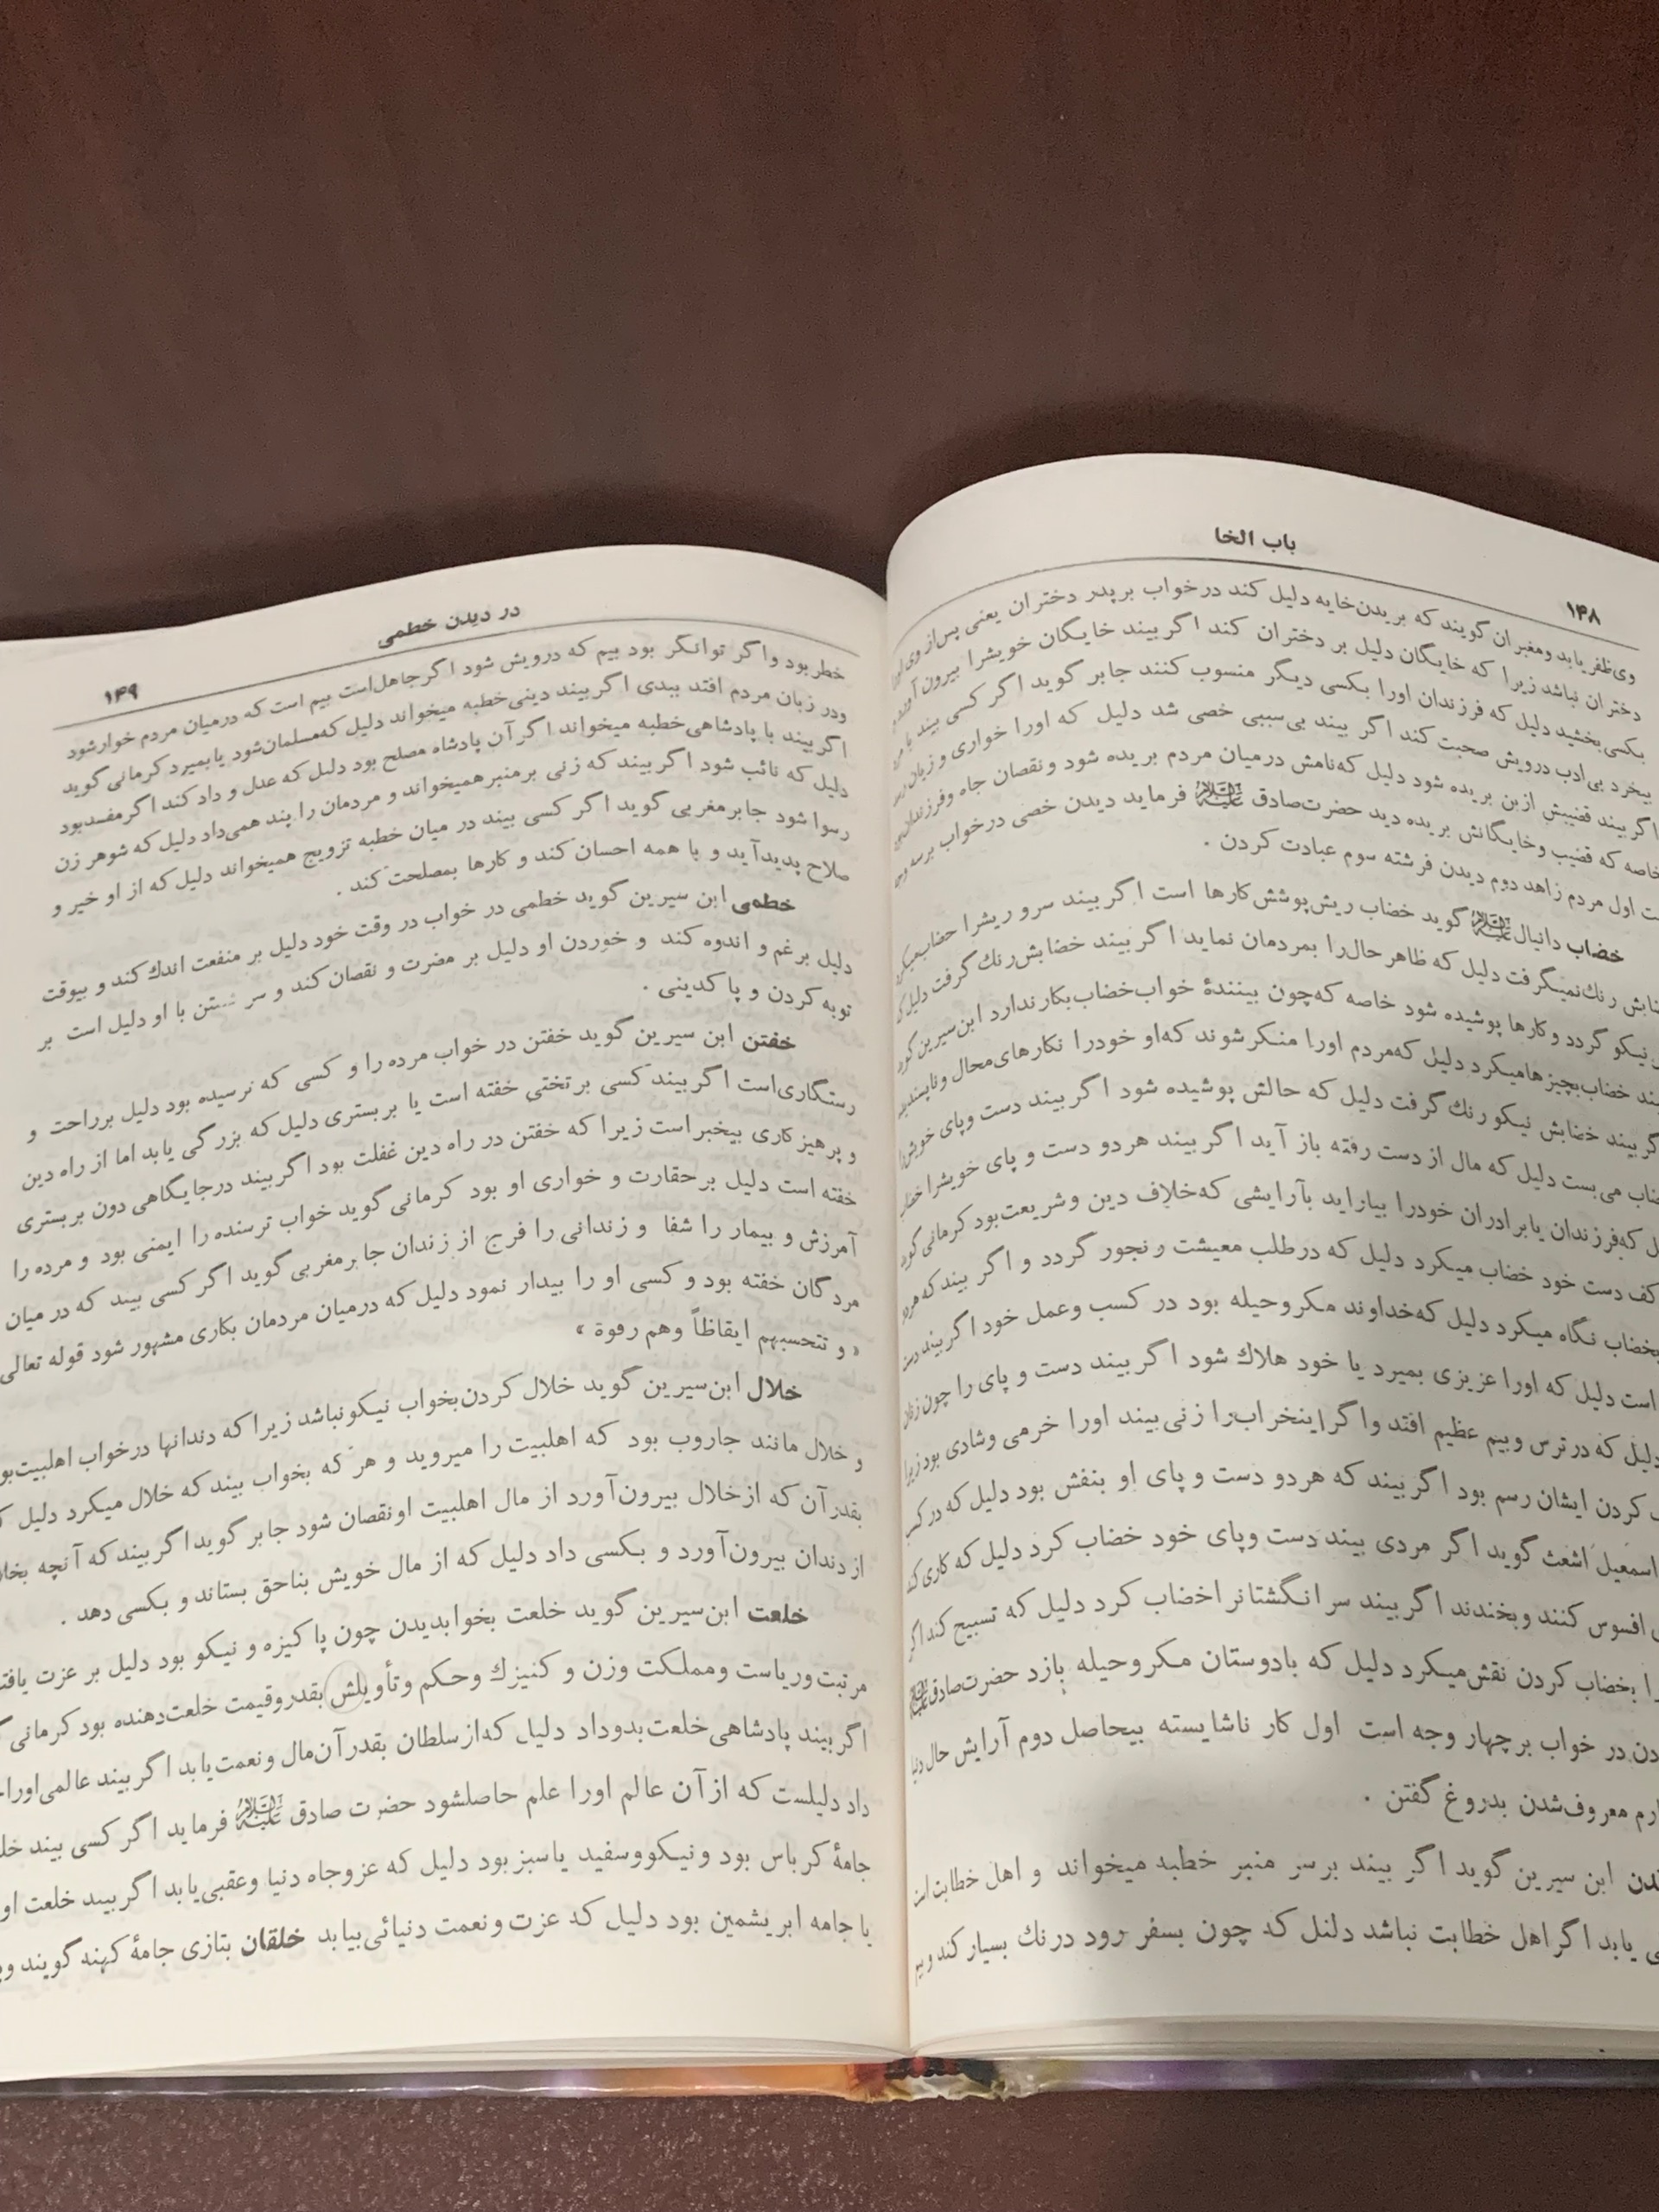 باب الخا
۱۴۸
وی‌ظفر یابد ومعبران گویند که بریدن‌خایه دلیل کند درخواب برپدر دختران یعنی پس‌از وی
دختران نباشد زیرا که خایگان دلیل بر دختران کند اگر بیند خایگان خویشرا بیرون
بکسی بخشید دلیل که فرزندان اورا بکسی دیگر منسوب کنند جابر گوید اگر کسی بیند با
بیخرد بی‌ادب درویش صحبت کند اگر بیند بی‌سببی خصی شد دلیل که اورا خواری و زیان
اگر بیند قضیبش ازبن بریده شود دلیل که‌نامش درمیان مردم بریده شود ونقصان جاه وفرزندان
خاصه که قضیب وخایگانش بریده دید حضرت‌صادق علیه السلام فرماید دیدن خصی درخواب برسه وجه
اول مردم زاهد دوم دیدن فرشته سوم عبادت کردن .
خضاب دانیال علیه السلام گوید خضاب ریش‌پوشش‌کارها است اگر بیند سرو ریشرا خضاب‌میکرد
رنك‌نمیگرفت دلیل که ظاهر حال‌را بمردمان نماید اگر بیند خضابش‌رنك گرفت دلیل
نیکو گردد وکارها پوشیده شود خاصه که‌چون بینندهٔ خواب‌خضاب‌بکار ندارد ابن‌سیرین گوید
خضاب‌بچیزهامیکرد دلیل که‌مردم اورا منکر شوند که‌او خودرا نکارهای‌محال
بیند خضابش نیکو رنك گرفت دلیل که حالش پوشیده شود اگر بیند دست وپای خویش
می‌بست دلیل که مال از دست رفته باز آید اگر بیند هردو دست و پای خویشرا
که‌فرزندان یابرادران خودرا بیاراید بآرایشی که‌خلاف دین وشریعت‌بود کرمانی گوید
کف دست خود خضاب میکرد دلیل که درطلب معیشت رنجور گردد و اگر بیند که
بخضاب نگاه میکرد دلیل که‌خداوند مکروحیله بود در کسب وعمل خود اگر بیند
است دلیل که اورا عزیزی بمیرد یا خود هلاك شود اگر بیند دست و پای را چون زنان
دلیل که درترس وبیم عظیم افتد واگر اینخراب‌را زنی‌بیند اورا خرمی وشادی بود زیرا
کردن ایشان رسم بود اگر بیند که هردو دست وپای او بنفش بود دلیل که در
اسمعیل اشعث گوید اگر مردی بیند دست وپای خود خضاب کرد دلیل که کاری
افسوس کنند وبخندند اگر بیند سر انگشتانرا خضاب کرد دلیل که تسبیح کند
بخضاب کردن نقش‌میکرد دلیل که بادوستان مکروحیله بازد حضرت‌صادق علیه السلام
در خواب برچهار وجه است اول کار ناشایسته بیحاصل دوم آرایش حال
معروف‌شدن بدروغ گفتن .
ابن سیرین گوید اگر بیند برسر منبر خطبه میخواند و اهل خطابت
یابد اگراهل خطابت نباشد دلنل که چون بسفر رود درنك بسیار کند
در دیدن خطمی
۱۴۹
خطربود واگر توانگر بود بیم که درویش شود اگرجاهل‌است بیم است که درمیان مردم خوارشود
ودر زبان مردم افتد ببدی اگر بیند دینی‌خطبه میخواند دلیل که‌مسلمان‌شود یابمیرد کرمانی گوید
اگر بیند با پادشاهی‌خطبه میخواند اگرآن پادشاه مصلح بود دلیل که عدل و داد کند اگر مفسدبود
دلیل که تائب شود اگر بیند که زنی برمنبرهمیخواند و مردمان را پند همی‌داد دلیل که شوهر زن
رسوا شود جابرمغربی گوید اگر کسی بیند در میان خطبه تزویج همیخواند دلیل که از او خیر و
صلاح پدیدآید و با همه احسان کند و کارها بمصلحت کند .
خطمی ابن سیرین گوید خطمی در خواب در وقت خود دلیل بر منفعت اندك کند و بیوقت
دلیل برغم و اندوه کند و خوردن او دلیل بر مضرت و نقصان کند و سر شستن با او دلیل است بر
توبه کردن و پاکدینی .
خفتن ابن سیرین گوید خفتن در خواب مرده را و کسی که نرسیده بود دلیل برراحت و
رستگاری‌است اگر بیند کسی برتختی خفته است یا بربستری دلیل که بزرگی یابد اما از راه دین
و پرهیزکاری بیخبراست زیرا که خفتن در راه دین غفلت بود اگر بیند درجایگاهی دون بربستری
خفته است دلیل برحقارت و خواری او بود کرمانی گوید خواب ترسنده را ایمنی بود و مرده را
آمرزش و بیمار را شفا و زندانی را فرج از زندان جابرمغربی گوید اگر کسی بیند که در میان
مردگان خفته بود و کسی او را بیدار نمود دلیل که درمیان مردمان بکاری مشهور شود قوله تعالی
« و تتحسبهم ایقاظاً وهم رقوة »
خلال ابن‌سیرین گوید خلال کردن‌بخواب نیکونباشد زیرا که دندانها درخواب اهلبیت‌بو
و خلال مانند جاروب بود که اهلبیت را میروید و هر که بخواب بیند که خلال میکرد دلیل
بقدرآن که ازخلال بیرون‌آورد از مال اهلبیت اونقصان شود جابر گوید اگر بیند که آنچه
از دندان بیرون‌آورد و بکسی داد دلیل که از مال خویش بناحق بستاند و بکسی دهد .
خلعت ابن‌سیرین گوید خلعت بخوابدیدن چون پاکیزه و نیکو بود دلیل بر عزت
مرتبت وریاست ومملکت وزن و کنیزك وحکم وتأویلش بقدروقیمت خلعت‌دهنده بود کرمانی
اگر بیند پادشاهی‌خلعت‌بدوداد دلیل که‌ازسلطان بقدرآن‌مال ونعمت‌یابد اگر بیند عالمی‌اورا
داد دلیلست که از آن عالم اورا علم حاصلشود حضرت صادق علیه السلام فرماید اگر کسی بیند
جامهٔ کرباس بود ونیکووسفید یاسبز بود دلیل که عزوجاه دنیا وعقبی‌یابد اگر بیند خلعت او
یا جامه ابریشمین بود دلیل که عزت ونعمت دنیائی‌بیابد خلقان بتازی جامهٔ کهنه گویند